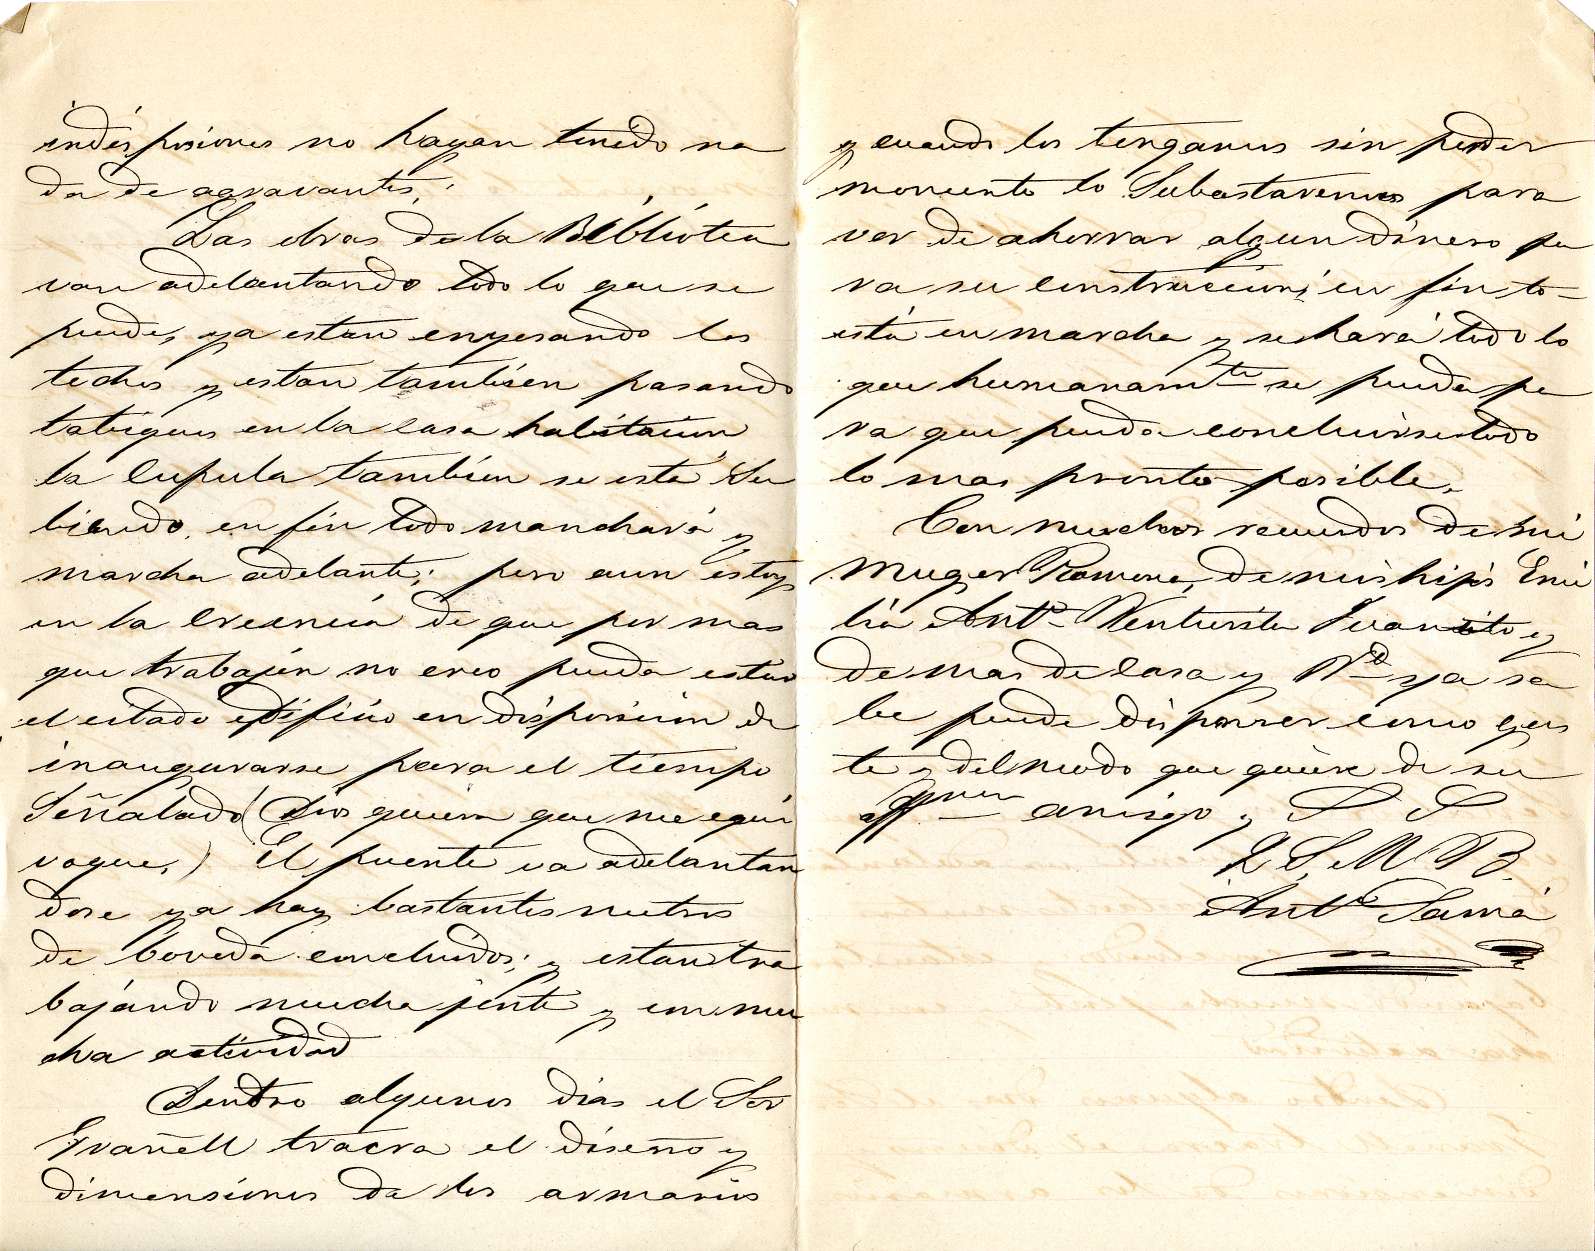 indisposiciones no hayan tenido na
da de agravantes,
Las obras de la Biblioteca
van adelantando todo lo que se
puede, ya estan enyesando los
techos y estan tambien pasando
tabiques en la casa habitacion
la cupula tambien se está su
biendo. en fin todo marchará y
marcha adelante; pero aun estoy
en la creencia de que por mas
que trabajen no creo pueda estar
el citado edificio en disposicion de
inaugurarse para el tiempo
Señalado (Dios quiera que me equi
voque,) El puente va adelantan
dose ya hay bastantes metros
de boveda concluidos; y estan tra
bajando mucha jente y con mu
cha actividad
Dentro algunos dias el Sor
Grañell traera el diseño y
dimensiones de los armarios
y cuando los tengamos sin perder
momento lo Subastaremos para
ver de ahorrar algun dinero pa
ra su construccion; en fin to-
está en marcha y se hará todo lo
que humanamte se pueda pa
ra que pueda concluirse todo
lo mas pronto posible.
Con muchos recuerdos de mi
Muger Romona, de mis hijos Emi
lia Antº Venturita Juanito y
de mas de casa y Vd ya sa
be puede disponer como gus
te y del modo que quiere de su
affmo amigo y S S
Q S. M B.
Antº Samá